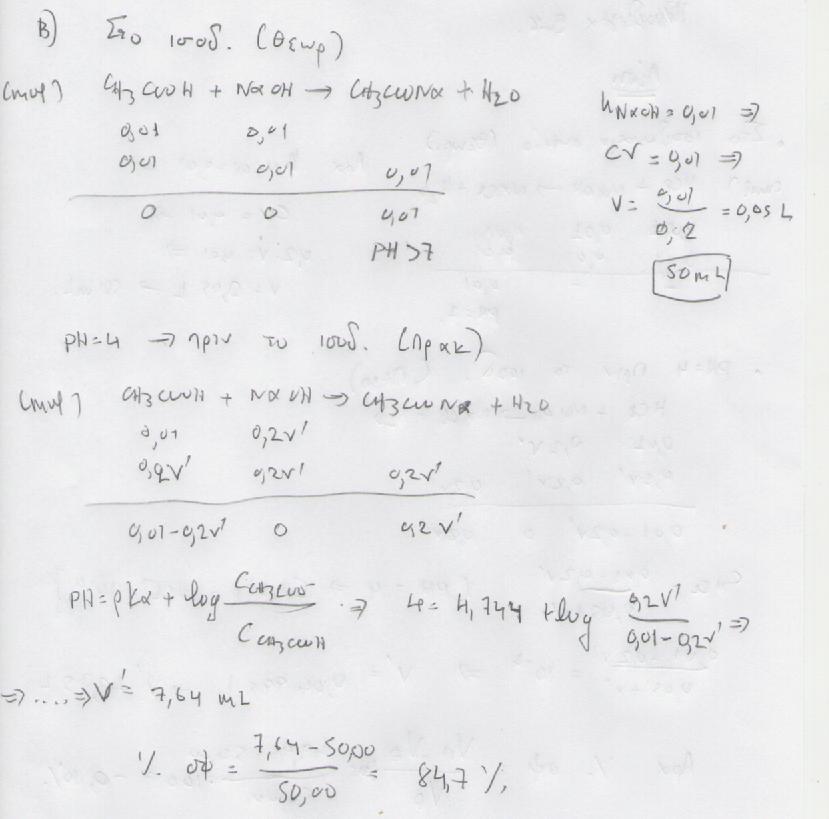 Β) Στο ισοδ. (θεωρ)
(mol) CH3COOH + NaOH → CH3COONa + H2O
0,01 0,01
0,01 0,01 0,01
0 0 0,01
PH >7
nNaOH = 0,01 ⇒
CV = 0,01 ⇒
V = 0,01 / 0,2 = 0,05 L
50 mL
PH=4 → πριν το ισοδ. (πρακ)
(mol) CH3COOH + NaOH → CH3COONa + H2O
0,01 0,2V'
0,2V' 0,2V' 0,2V'
0,01-0,2V' 0 0,2V'
PH = pKa + log CCH3COO- / CCH3COOH ⇒ 4 = 4,744 + log 0,2V' / 0,01-0,2V' ⇒
⇒ .... ⇒ V' = 7,64 mL
% σφ = 7,64 - 50,00 / 50,00 = 84,7 %